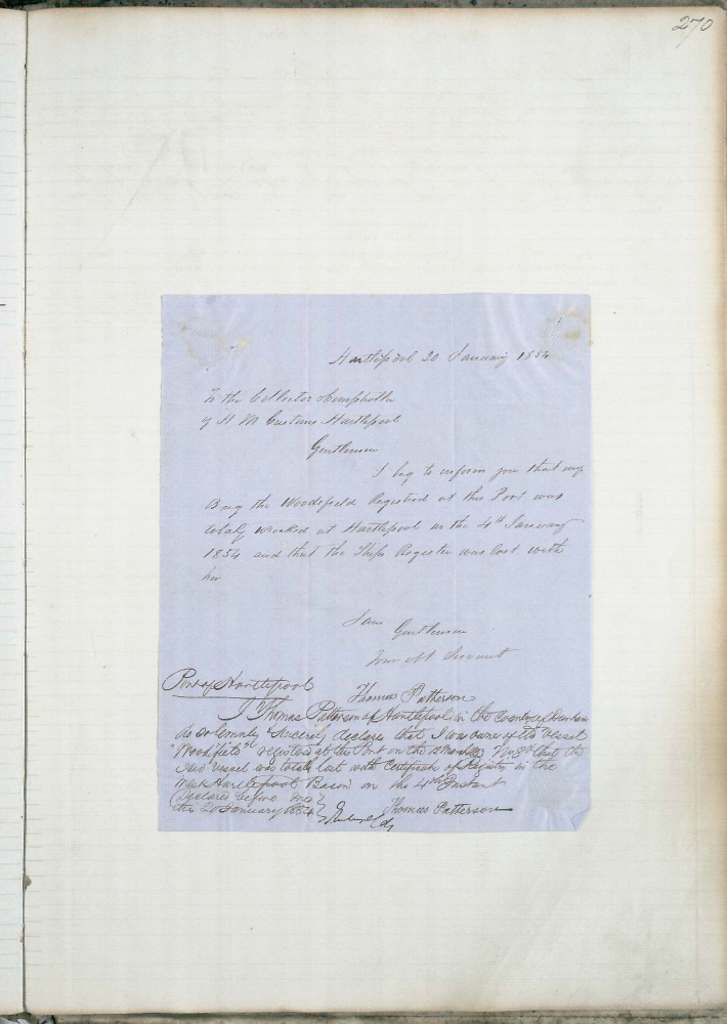 270
Hartlepool 20 January 1854
To the Collector & Comptroller
of H M Customs Hartlepool
Gentlemen
I beg to inform you that my
Brig the Woodsfield Registred at this Port was
totaly wrecked at Hartlepool on the 4th January
1854 and that the Ships Register was lost with
her
I am
Gentlemen
Your Obt Servant
Thomas Patterson
Port of Hartlepool
I Thomas Patterson of Hartlepool in the County of Durham
do solemnly & sincerely declare that I was owner of the vessel
"Woodsfield" registered at the Port on the No 8 & that the
said vessel was totally lost with Certificate of Registry in the
West Hartlepool Basin on the 4th Instant
Declared before me
the 20 January 1854
Thomas Patterson